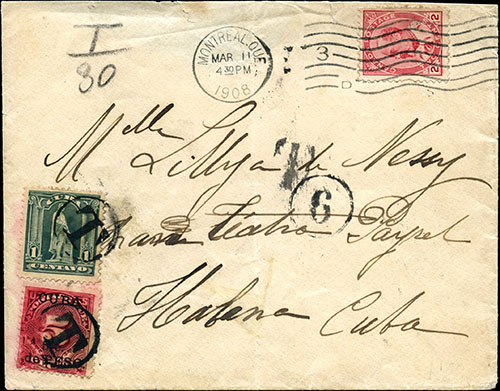 T
80
MONTREAL, QUE.
MAR 11
4 30 PM
1908
3
D
POSTAGE
2 2
Mlle
Lillyan de Nessy
T
6
Teatro Payret
Habana
Cuba
1 1
CENTAVO
T
CUBA
de PESO
T